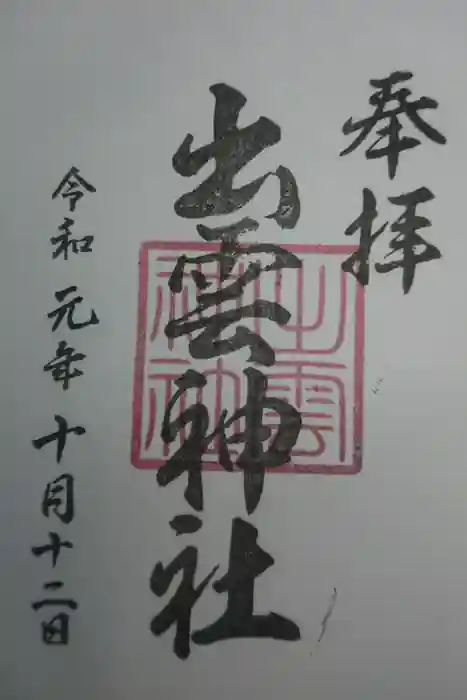 奉拝
出雲神社
出雲
神社
令和元年十月十二日